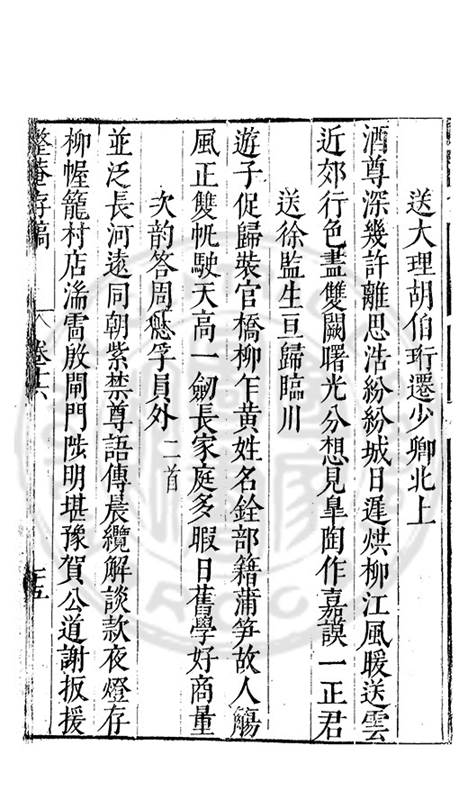 送大理胡伯珩遷少卿北上
酒尊深幾許離思浩紛紛城日遲烘柳江風暖送雲
近郊行色盡雙闕曙光分想見皐陶作嘉謨一正君
送徐監生亘歸臨川
遊子促歸裝官橋柳乍黄姓名銓部籍蒲笋故人觴
風正雙帆駛天高一劒長家庭多暇日舊學好商量
次韵答周懋孚員外二首
並泛長河遠同朝紫禁尊語傳晨纜解談款夜燈存
柳幄籠村店湍雷殷閘門陟明堪豫賀公道謝扳援
整菴存稿
卷十六
十五